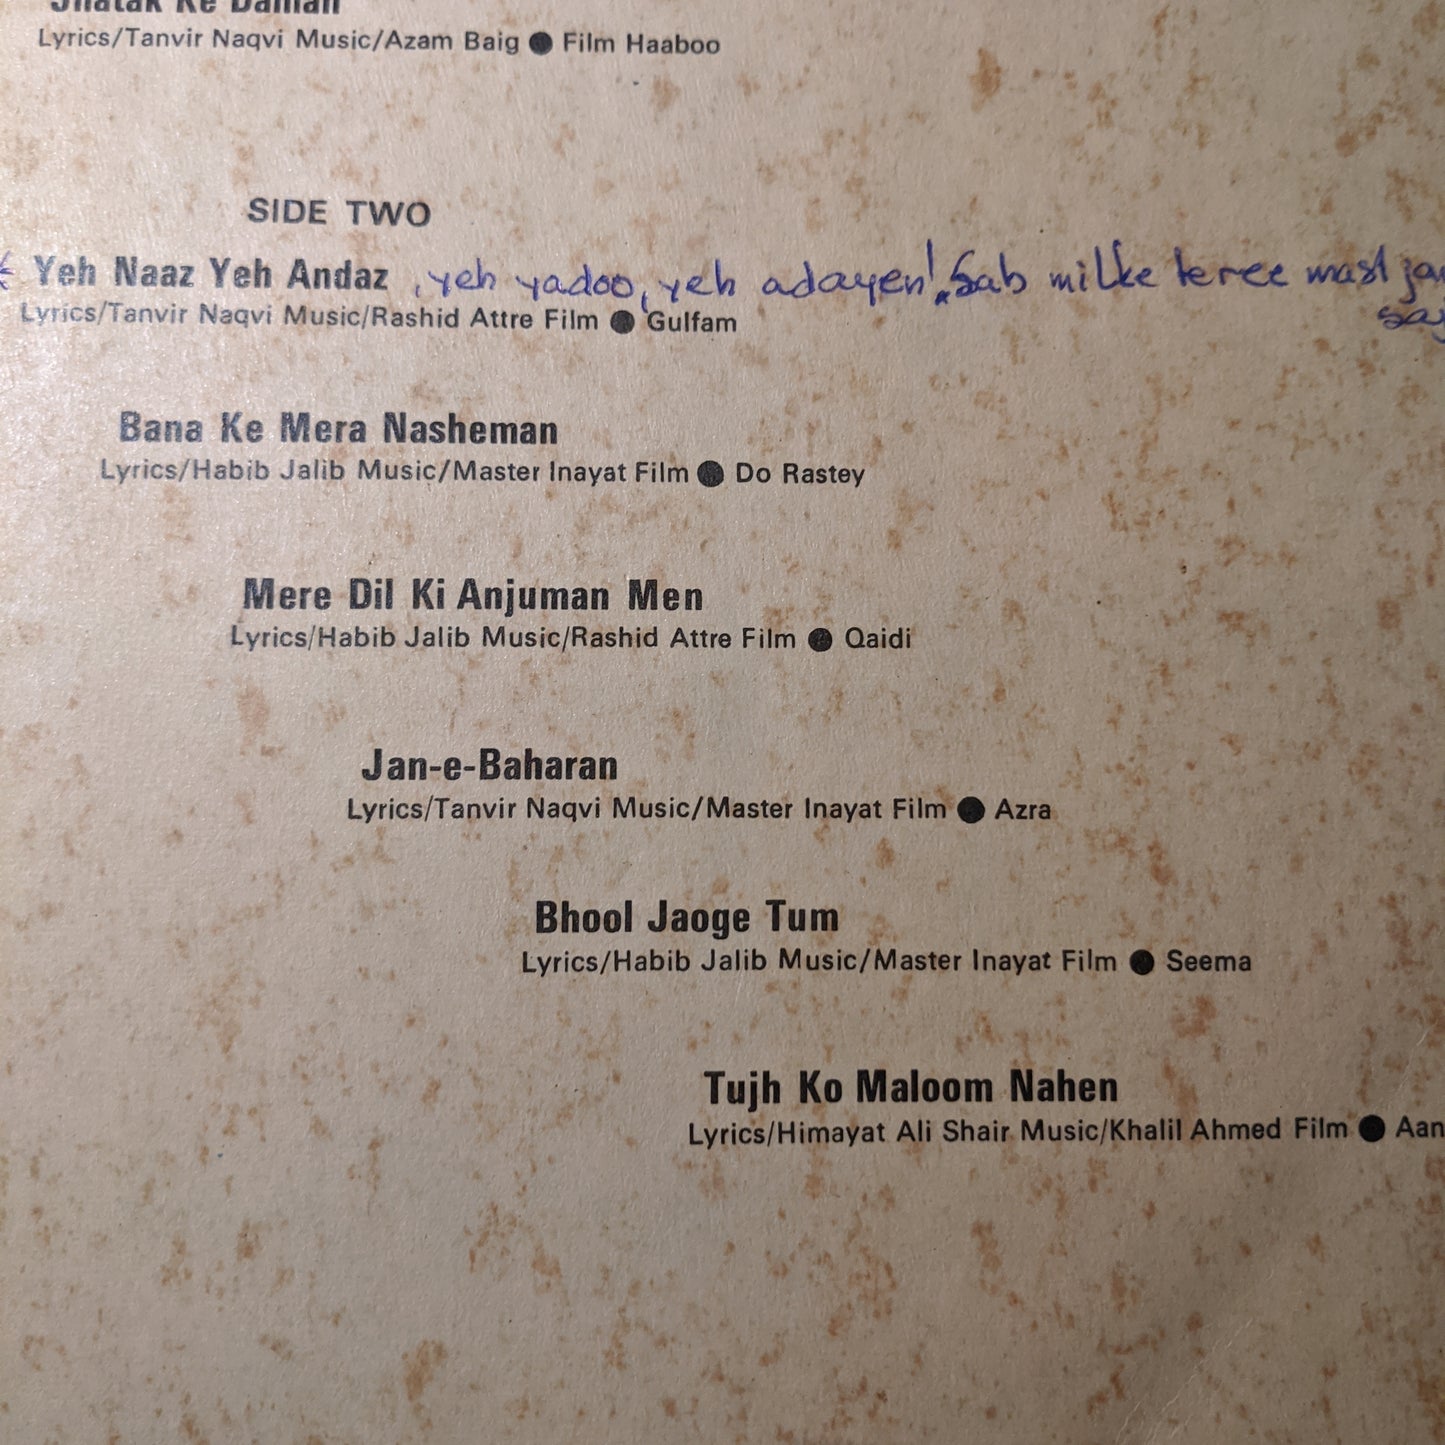 Jhatak Ke Daman
Lyrics/Tanvir Naqvi Music/Azam Baig ● Film Haaboo
SIDE TWO
Yeh Naaz Yeh Andaz , yeh yadoo, yeh adayen! Sab milke teree mast
Lyrics/Tanvir Naqvi Music/Rashid Attre Film ● Gulfam
Bana Ke Mera Nasheman
Lyrics/Habib Jalib Music/Master Inayat Film ● Do Rastey
Mere Dil Ki Anjuman Men
Lyrics/Habib Jalib Music/Rashid Attre Film ● Qaidi
Jan-e-Baharan
Lyrics/Tanvir Naqvi Music/Master Inayat Film ● Azra
Bhool Jaoge Tum
Lyrics/Habib Jalib Music/Master Inayat Film ● Seema
Tujh Ko Maloom Nahen
Lyrics/Himayat Ali Shair Music/Khalil Ahmed Film ● Aan